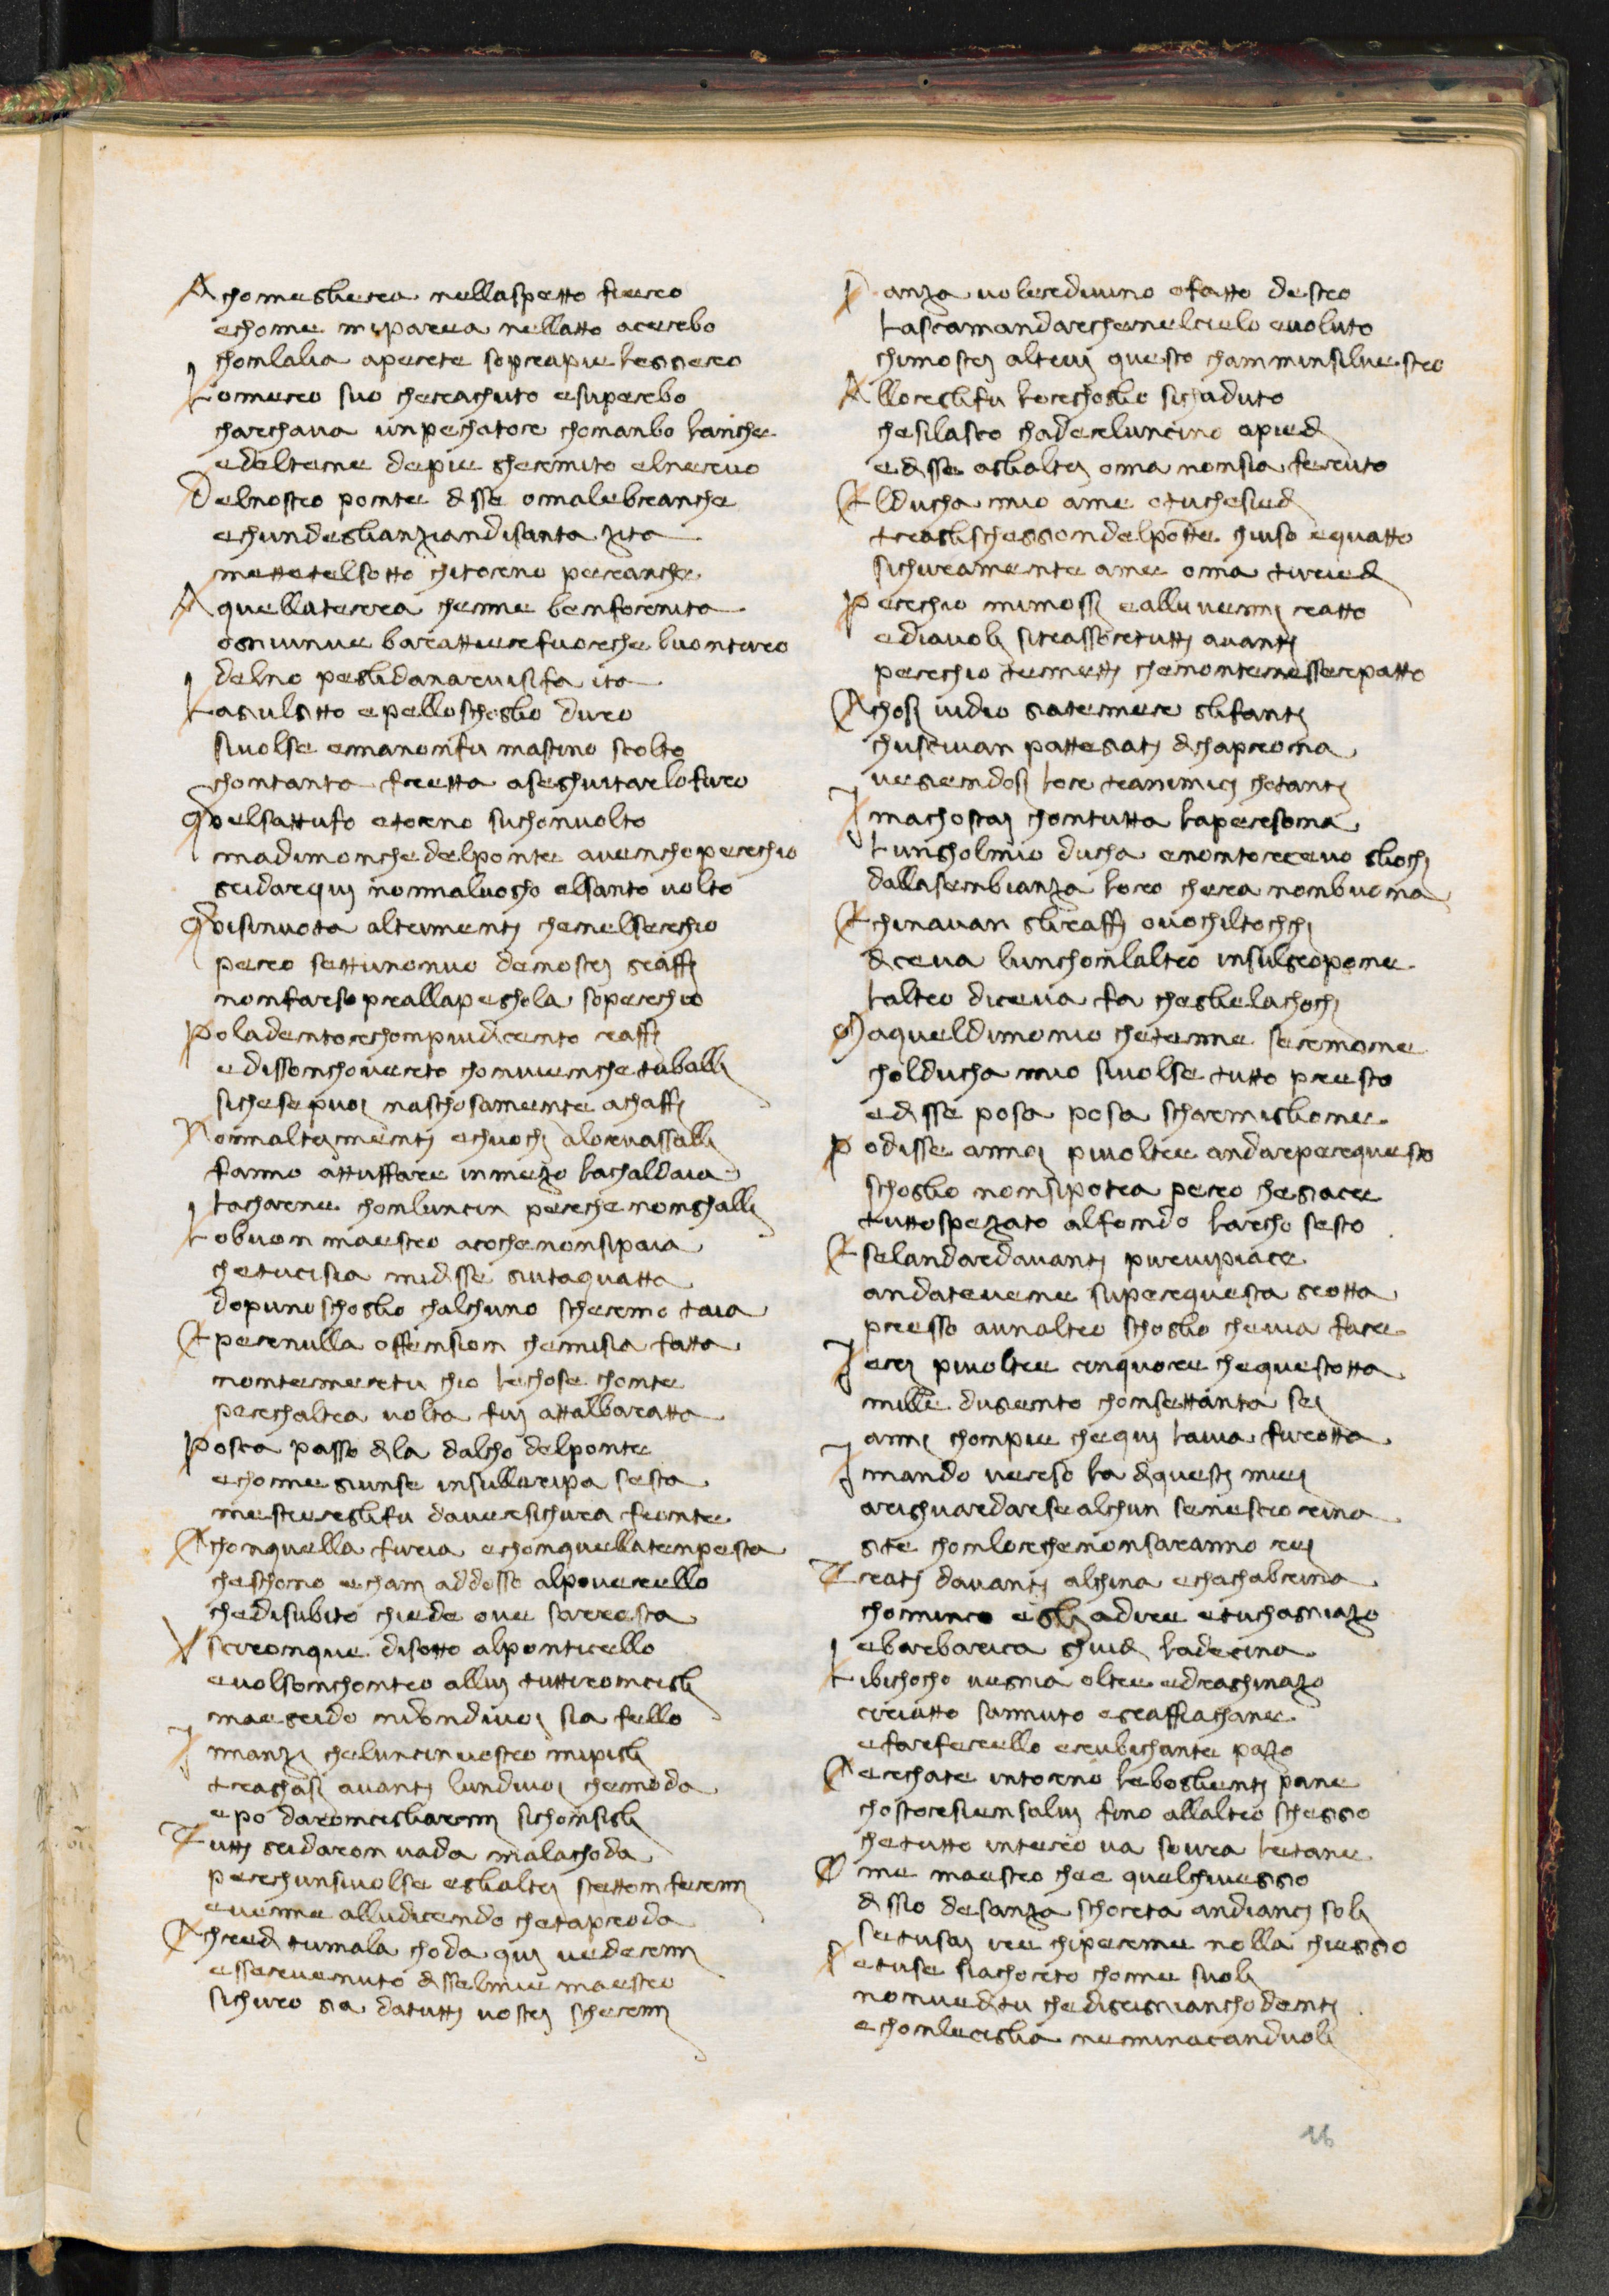 A chomeglierea nellaspetto fiero
echome miparea nellatto acerbo
chonlalia aperte sopreapie leggero
Lomero suo cheraghuto esuperbo
charchava unpechatore chomanbo lanche
edelteme depie ghermito elnervo
Delnostro ponte disse omalebranche
echundeglianziandisanta zita
mettetelsotto chitorno peranche
A quellaterra cheme benfornita
ogniunve barattierefuorche buonturo
delno peglidanarvisifa ita
Lagiulgitto epelloschoglio duro
sivolse emanonfu mastino sciolto
chontanta fretta aseghuitarlofuro
Quelsattufo etorno suchonvolto
madimonchedelponte aveanchoperchio
gridarqui nonnaluogho elsanto volto
Quisinuota altrimenti chenelserchio
pero settunonvuo denostri graffi
nonfarsopreallapeghola soperchio
Poladdentorchonpiudicento raffi
edissonchoverto chonvienchetuballi
sichesepuoi naschosamente achaffi
Nonnaltrimenti echuochi alorvassalli
fanno attuffare inmezo lachaldaia
lacharne chonluncin perchenonghalli
Lobuon maestro acochenonsipaia
chetucisia midisse giutaquatta
dopunoschoglio chalchuno schermo taia
E pernulla offension chemisia fatta
nontemeretu chio lechose chonte
perchaltra volta fui attalbaratta
Posca passo dila dalcho delponte
echome giunse insullaripa sesta
mestiereglifu daversichura fronte
Achonquella furia echonquellatenpesta
cheschono echani addosso alpoverello
chedisubito chiede ove sarresta
Vscironque disotto alponticello
evolsonchontro allui tuttironcigli
maegrido nundivoi sia fello
Innanzi cheluncinvostro mipigli
traghasi avanti lundivoi chemoda
epo daroncigliarmi sichonsigli
Tutti gridaron vada malachoda
perchunsivolse eglialtri stettonfermi
evenne alludicendo chetaproda
Achredi tumala choda qui vedermi
esservenuto disselmie maestro
sichuro gia datutti vostri schermi
Sanza volerdivino efatto destro
Lasciamandarchenelcielo evoluto
chimostri altrui questo chamminsilvestro
Allorglifu lorghoglio sichaduto
chesilascio chaderluncino apiedi
edisse aglialtri oma nonsia feruto
Elducha mio ame otuchesiedi
traglischeggiondelponte chuiso equatto
sichuramente ame oma tiriedi
Perchio mimossi eallivenni ratto
ediavoli sifeassortutti avanti
perchio temetti chenontenesserpatto
Achosi vidio giatemere glifanti
chuscivan patteggiati dichaprona
vegiendosi lor tranimici chotanti
Imachostai chontutta lapersona
lungholmio ducha enontorcevo gliochi
dallasembianza loro chera nonbuona
Echinavan gliraffi ovochiltochchi
diceva lunchonlaltro insulgropone
laltro diceva fa chegliela chochi
Maqueldimonio chetenne sermone
cholducha mio sivolse tutto presto
edisse posa posa scharmiglione
Podisse annoi piuoltre andarperquesto
schoglio nonsipotra pero chegiace
tuttospezato alfondo larcho sesto
Eselandaredavanti purevipiace
andatevene superquesta grotta
presso aunaltro schoglio chevia face
Ieri piuoltre cinquore chequestotta
mille dugiento chonsettanta sei
anni chompie chequi lavia furotta
Imando verso la diquesti miei
arighuardarsealchun senesciorina
gite chonlorchenonsaranno rei
Trati davanti alchina echachabrina
chomincio egli adire etuchagniazo
ebarbarica ghuidi ladecina
Libichocho vegnia oltre edraghinazo
ciriatto sannuto egraffiachane
efarferello erubichante pazo
Acerchate intorno lebogljenti pane
chostorsiensalvi fino allaltro scheggio
chetutto intero va sovra letane
O me maestro chee quelchiveggio
dissio desanza schorta andianci soli
setusai ire chiperme nolla chieggio
Setuse siachorto chome suoli
nonveditu chedigrignianchodenti
echonleciglia neminaccianduoli
16